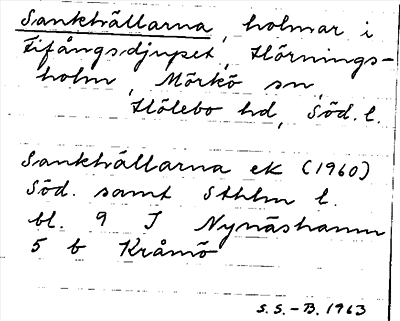 Sankhällarna, holmar i
Fifångsdjupet, Hörnings-
holm, Mörkö sn,
Hölebo hd, Söd. l.
Sankhällarna ek (1960)
Söd. samt Sthlm l.
bl. 9 I Nynäshamn
5 b Kråmö
S.S.-B. 1963